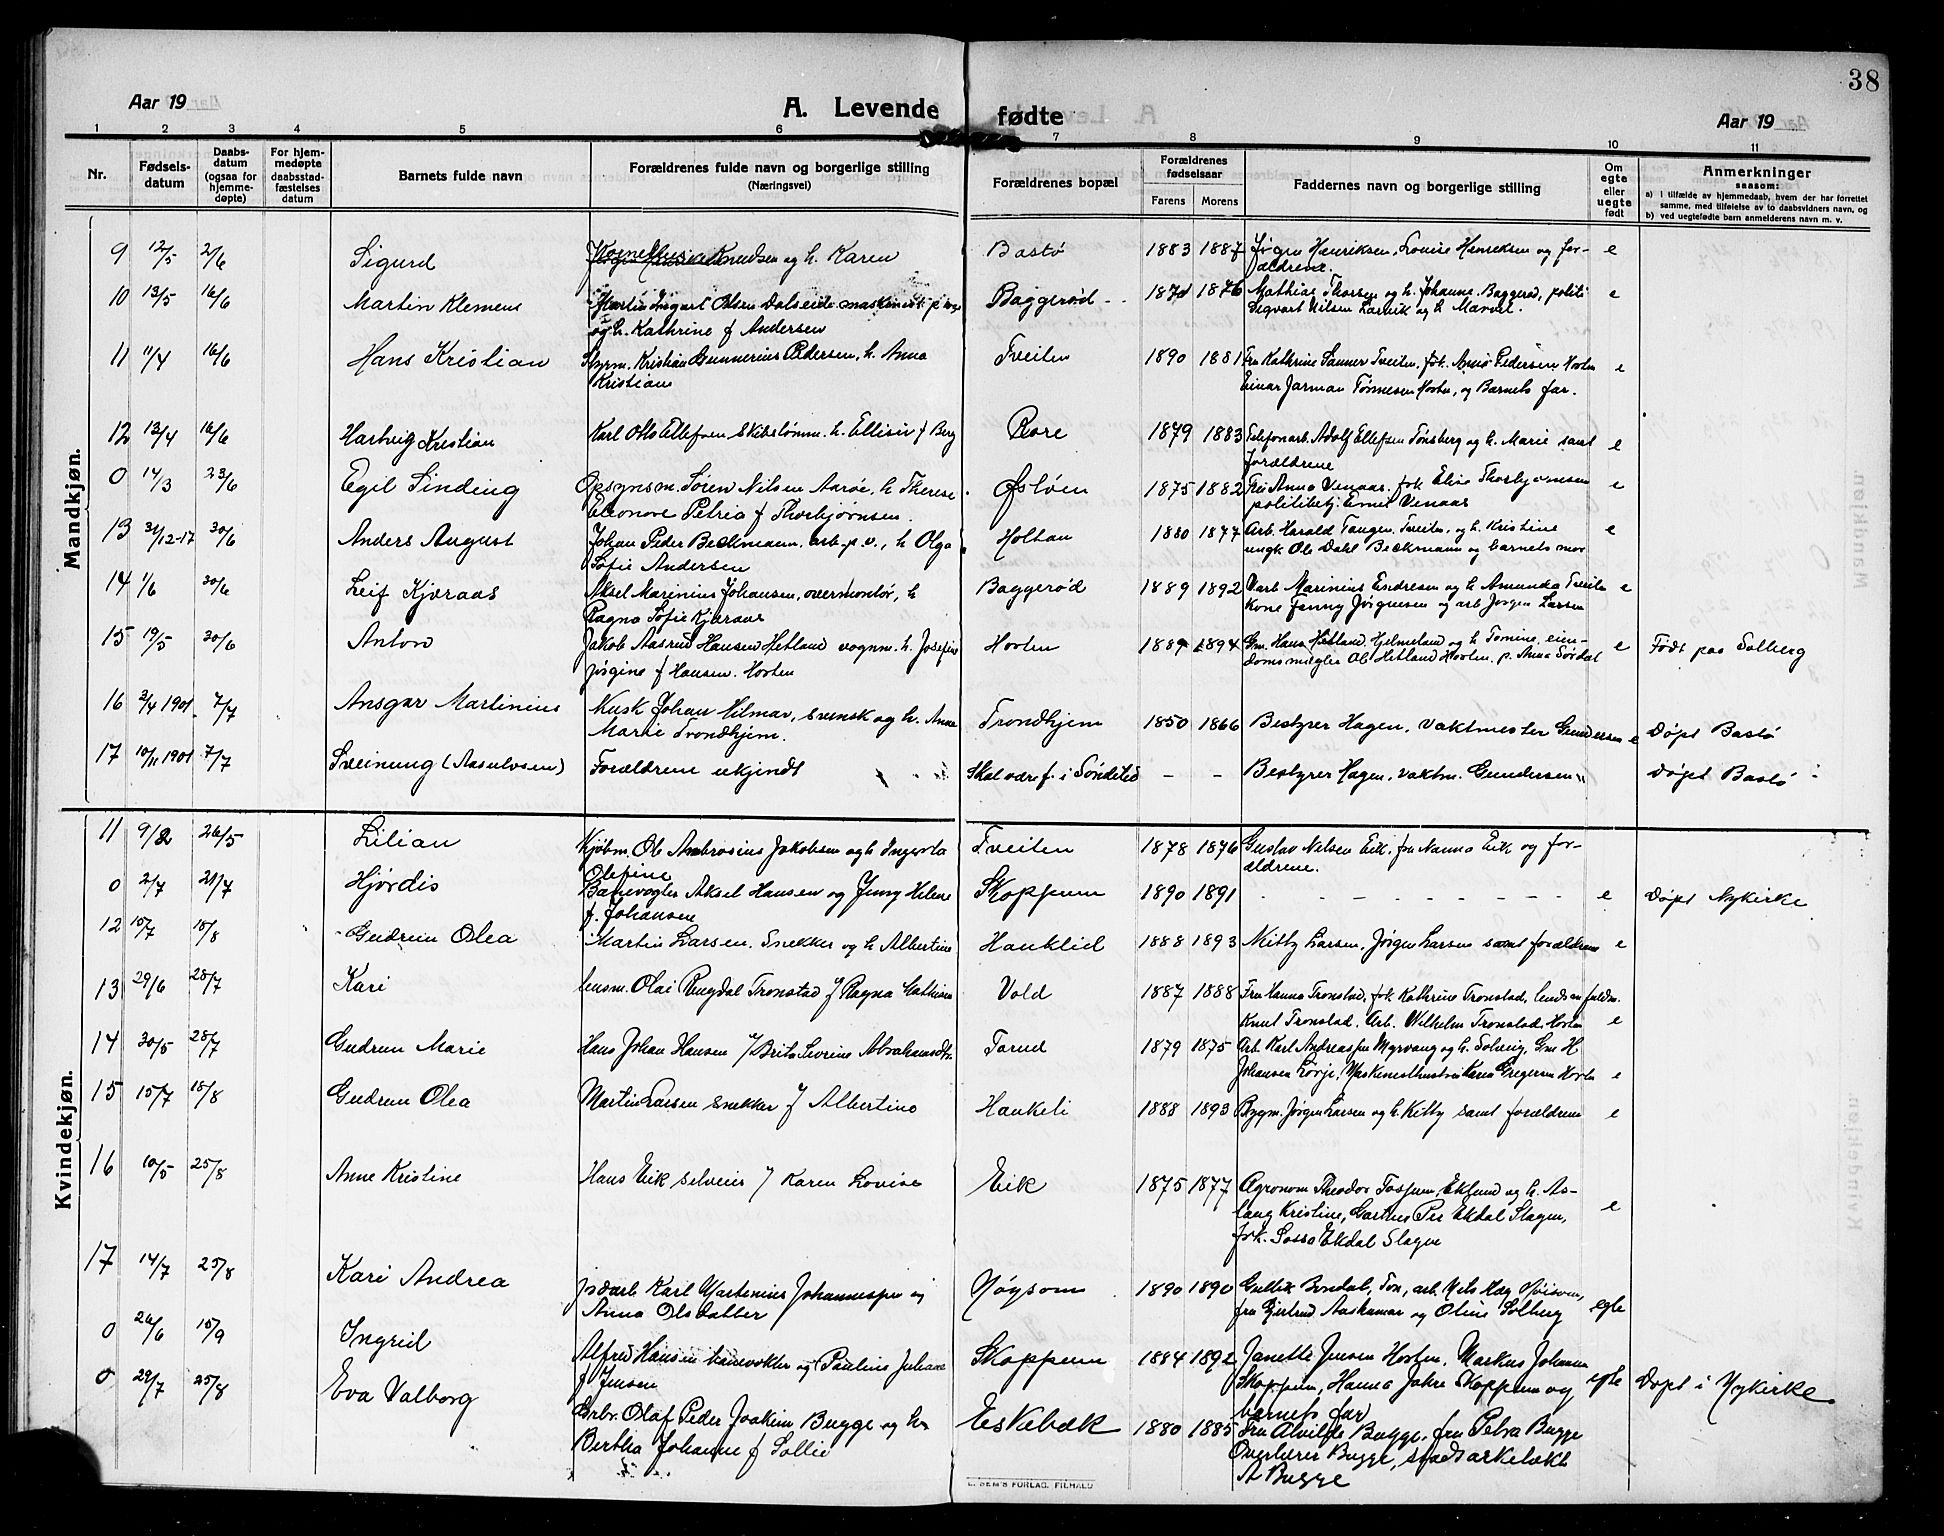 38
Aar 19
A. Levende
fødte
Aar 19
1 2 3 4 5 6 7 8 9 10 11
Nr.
Fødsels-
datum
Daabs-
datum
(ogsaa for
hjemme-
døpte)
For hjem-
medøpte
daabsstad-
fæstelses
datum
Barnets fulde navn
Forældrenes fulde navn og borgerlige stilling
(Næringsvei)
Forældrenes bopæl
Forældrenes
fødselsaar
Farens Morens
Faddernes navn og borgerlige stilling
Om
egte
eller
uegte
født
Anmerkninger
saasom:
a) i tilfælde av hjemmedaab, hvem der har forrettet
samme, med tilføielse av to daabsvidners navn, og
b) ved uegtefødte barn anmelderens navn m. v.
Mandkjøn.
9 12/5 2/6 Sigurd Knudsen og h. Karen Bastø 1883 1887 Jørgen Henriksen, Louise Henriksen og for- e
ældrene.
10 13/5 16/6 Martin Klemens Martin Ingvart Olsen Dalseide maskinist Baggerød 1871 1876 Mathias Thorsen og h. Johanne, Baggerød, politi e
og h. Kathrine f Andersen Sigvart Nilsen Larvik og h
11 11/4 16/6 Hans Kristian Styrm. Kristian Gunnerius Pedersen, h. Anna Tveiten 1890 1881 Fru Kathrine Sanner Tveiten, frk. Anna Pedersen Horten e
Kristians Einar Jarman Tønnesen Horten, og Barnets far.
12 13/4 16/6 Hartvig Kristian Karl Otto Ellefsen, Skibstømm. h. Ellisiv f Berg Rore 1879 1883 Telefonarb. Adolf Ellefsen Tønsberg og h. Marie samt e
forældrene
0 14/3 23/6 Egil Sinding Opsynsm. Søren Nilsen Aarøe, h Therese Østøen 1875 1882 Fru Anna Venaas, frk Elise Thorbjørnsen e
Eleonore Petria f Thorbjørnsen. politibetj. Emil Venaas
13 31/12-17 30/6 Anders August Johan Peder Beckmann, arb. p.v., h Olga Holtan 1880 1877 Arb. Harald Taugen, Tveiten, og h. Kristine e
Sofie Andersen ungk Ole Dahl Beckmann og barnets mor
14 1/6 30/6 Leif Kjæraas Aksel Marinius Johansen, overmontør, h Baggerød 1889 1892 Marinius Endresen og h Amunda Tveiten e
Ragna Sofie Kjæraas kone Fanny Jørgensen og arb Jørgen Larsen
15 19/5 30/6 Anton Jakob Aasrud Hansen Hetland vognm. h. Josefine Horten 1889 1894 Gm. Hans Hetland, Hjelmeland og h Tomine, eien- e Født paa Solberg
Jørgine f Hansen. Horten domsmægler Ole Hetland Horten, p. Anna Sørdal
16 2/4 1901 7/7 Ansgar Martinius Musk Johan Hilmar, svensk og h. Anne Trondhjem 1850 1866 Bestyrer Hagen, Vaktmester Gundersen e Døpt Bastø
Marie Trondhjem.
17 10/11 1901 7/7 Sveinung (Aasulvsen) Forældrene ukjendt Skal være f. i Søndeled – – Bestyrer Hagen, vaktm. Gundersen " Døpt Bastø
Kvindekjøn.
11 9/2 26/5 Lilian Kjøbm. Ole Ambrosius Jakobsen og h Ingerta Tveiten 1878 1876 Gustav Nilsen Eik, fru Nanna Eik og for-
Olefine ældrene.
0 2/7 21/7 Hjørdis Banevogter Aksel Hansen og Jenny Helene Skoppum 1890 1891 - - - - - - - - e Døpt Nykirke
f. Johansen
12 15/7 18/8 Gudrun Olea Martin Larsen, Snekker og h Albertine Hauklid 1888 1893 Kitty Larsen, Jørgen Larsen samt forældrene e
13 29/6 28/7 Kari lensm. Olai Ringdal Tronstad f Ragna Mathisen Vold 1887 1888 Fru Hanna Tronstad, frk Kathrine Tronstad, lendsm fuldm.
Knut Tronstad, Arb. Wilhelm Tronstad, Horten e
14 30/5 28/7 Gudrun Marie Hans Johan Hansen f Brita Severine Abrahamsdtr. Tarud 1879 1875 Arb. Karl Andreassen Myrvang og h. Solveig, Gm H
Johansen Lørje, Maskinisthustru Karen Gregersen Horten e
15 15/7 18/8 Gudrun Olea Martin Larsen snekker f Albertine Haukeli 1888 1893 Bygm. Jørgen Larsen og h. Kitty samt forældrene e
16 10/5 25/8 Anne Kristine Hans Eik selveier f Karen Lovise Eik 1875 1877 Agronom Theodor Fossum, Eklund og h. As-
laug Kristine, Gartner Per Ekdal Slagen, e
frk. Sossa Ekdal Slagen
17 14/7 25/8 Kari Andrea jordarb Karl Martinius Johannesen og Nøysom 1890 1890 Gullik Bondal, Ton, arb. Nils Hag Nøisom, egte
Anna Olsdatter fru Gjertrud Aaskamar og Oline Solberg
0 26/6 15/9 Ingrid Alfred Hansen banevokter og Pauline Juliane Skoppum 1884 1892 Janette Jensen Horten, Markus Johansen egte Døpt i Nykirke
f Jensen Skoppum, Hanna Jahre Skoppum og
barnets far
0 29/7 25/8 Eva Valborg Grbr. Olaf Peder Joakim Bugge og h. Eskebæk 1880 1885 Fru Alvilde Bugge, fru Petra Bugge
Bertha Johanne f Sollie Overlærer Bugge, stadsarkitekt
A Bugge
SEM'S FORLAG, FR.HALD